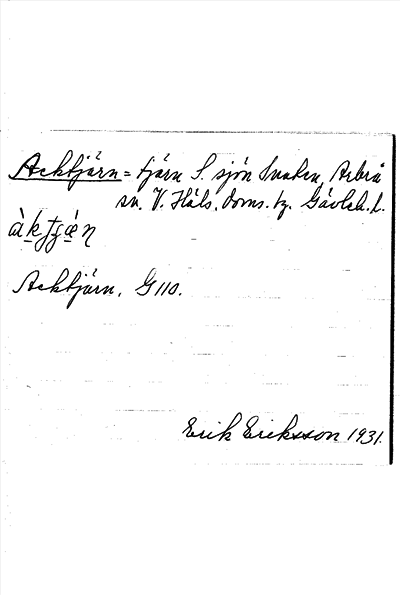 Acktjärn = tjärn S. sjön Snaken, Arbrå
sn. V. Häls. doms. tg. Gävleb. l.
Acktjärn. G 110.
Erik Eriksson 1931.